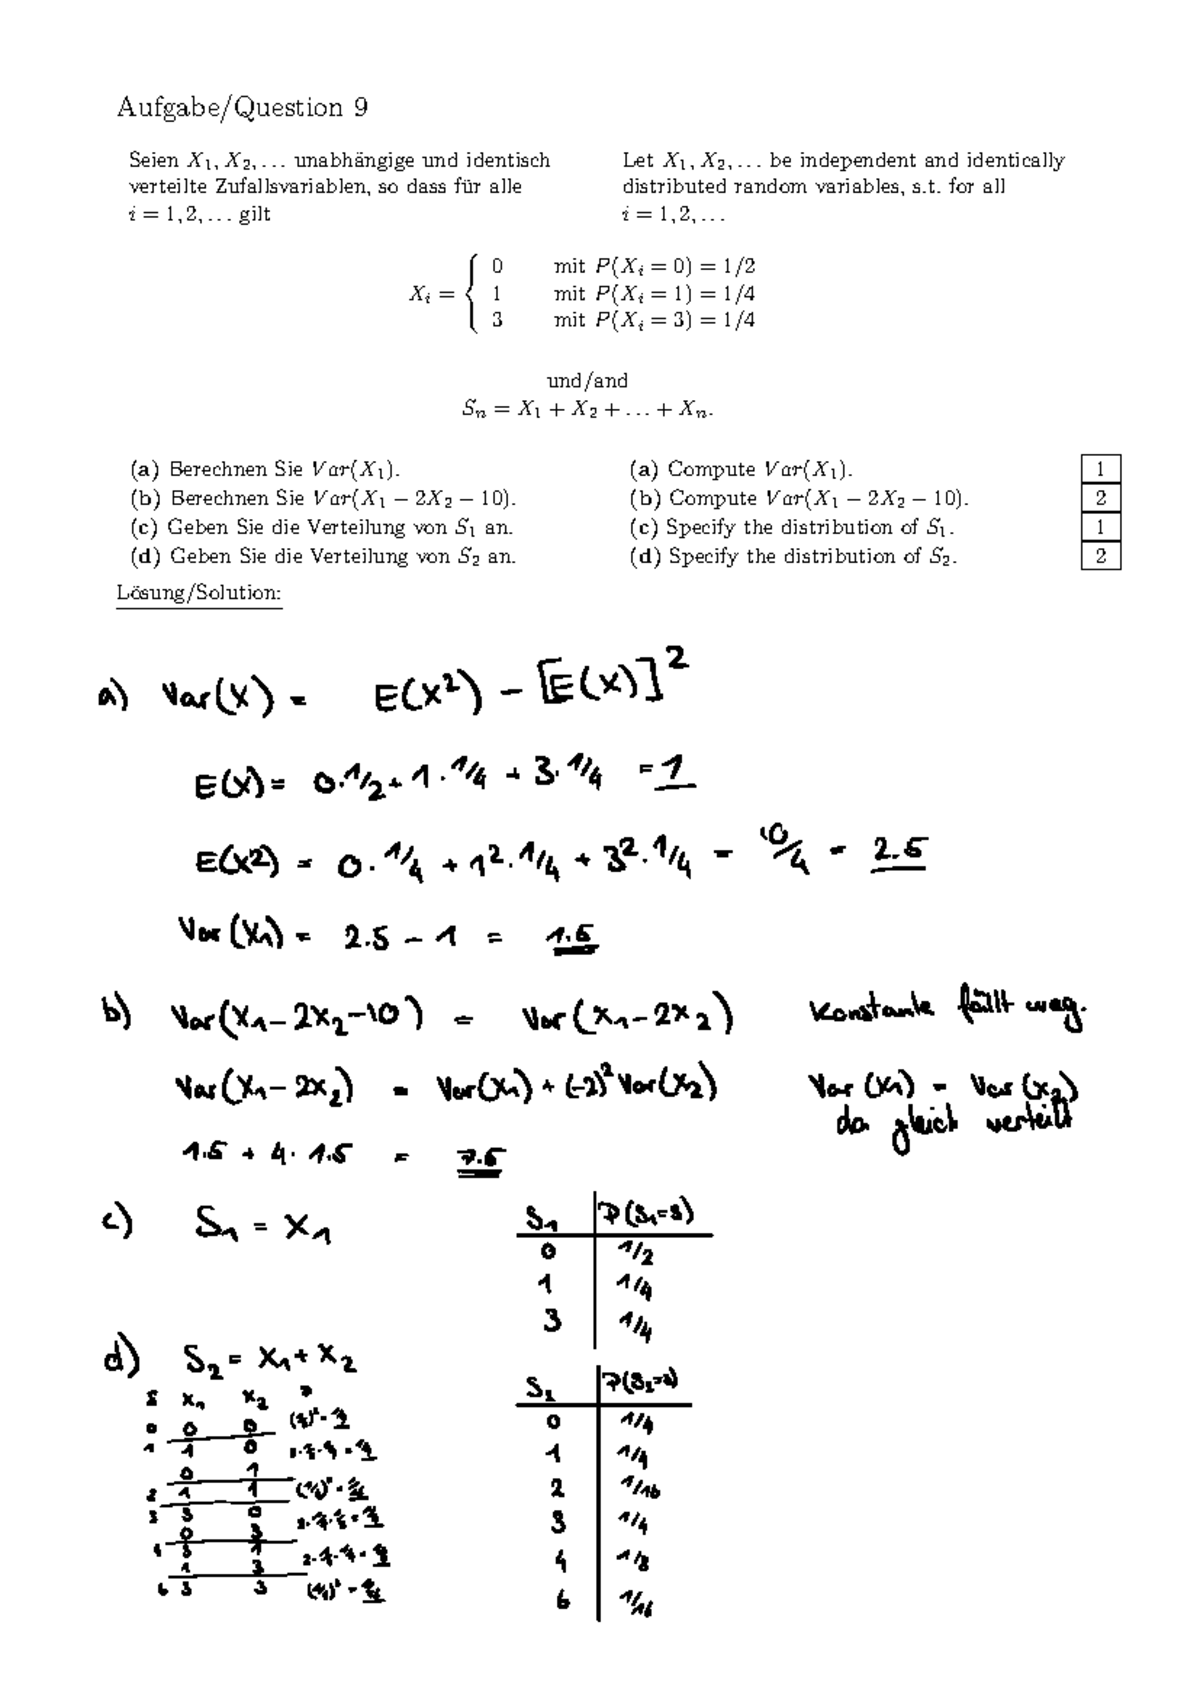 Aufgabe/Question 9
Seien X₁, X₂, … unabhängige und identisch
verteilte Zufallsvariablen, so dass für alle
i = 1, 2, … gilt
Let X₁, X₂, … be independent and identically
distributed random variables, s.t. for all
i = 1, 2, …
Xᵢ = { 0 mit P(Xᵢ = 0) = 1/2
1 mit P(Xᵢ = 1) = 1/4
3 mit P(Xᵢ = 3) = 1/4
und/and
Sₙ = X₁ + X₂ + … + Xₙ.
(a) Berechnen Sie Var(X₁).
(b) Berechnen Sie Var(X₁ − 2X₂ − 10).
(c) Geben Sie die Verteilung von S₁ an.
(d) Geben Sie die Verteilung von S₂ an.
(a) Compute Var(X₁). 1
(b) Compute Var(X₁ − 2X₂ − 10). 2
(c) Specify the distribution of S₁. 1
(d) Specify the distribution of S₂. 2
Lösung/Solution:
a) Var(X) = E(X²) − [E(X)]²
E(X) = 0·1/2 + 1·1/4 + 3·1/4 = 1
E(X²) = 0·1/4 + 1²·1/4 + 3²·1/4 = 10/4 = 2.5
Var(X₁) = 2.5 − 1 = 1.5
b) Var(X₁ − 2X₂ − 10) = Var(X₁ − 2X₂) Konstante fällt weg.
Var(X₁ − 2X₂) = Var(X₁) + (−2)² Var(X₂) Var(X₁) = Var(X₂)
da gleich verteilt
1.5 + 4·1.5 = 7.5
c) S₁ = X₁
S₁ P(S₁=s)
0 1/2
1 1/4
3 1/4
d) S₂ = X₁ + X₂
S X₁ X₂ P
0 0 0
1 1 0
0 1
2 1 1
3 3 0
0 3
4 3 1
1 3
6 3 3
S₂ P(S₂=s)
0 1/4
1 1/4
2 1/16
3 1/4
4 1/8
6 1/16